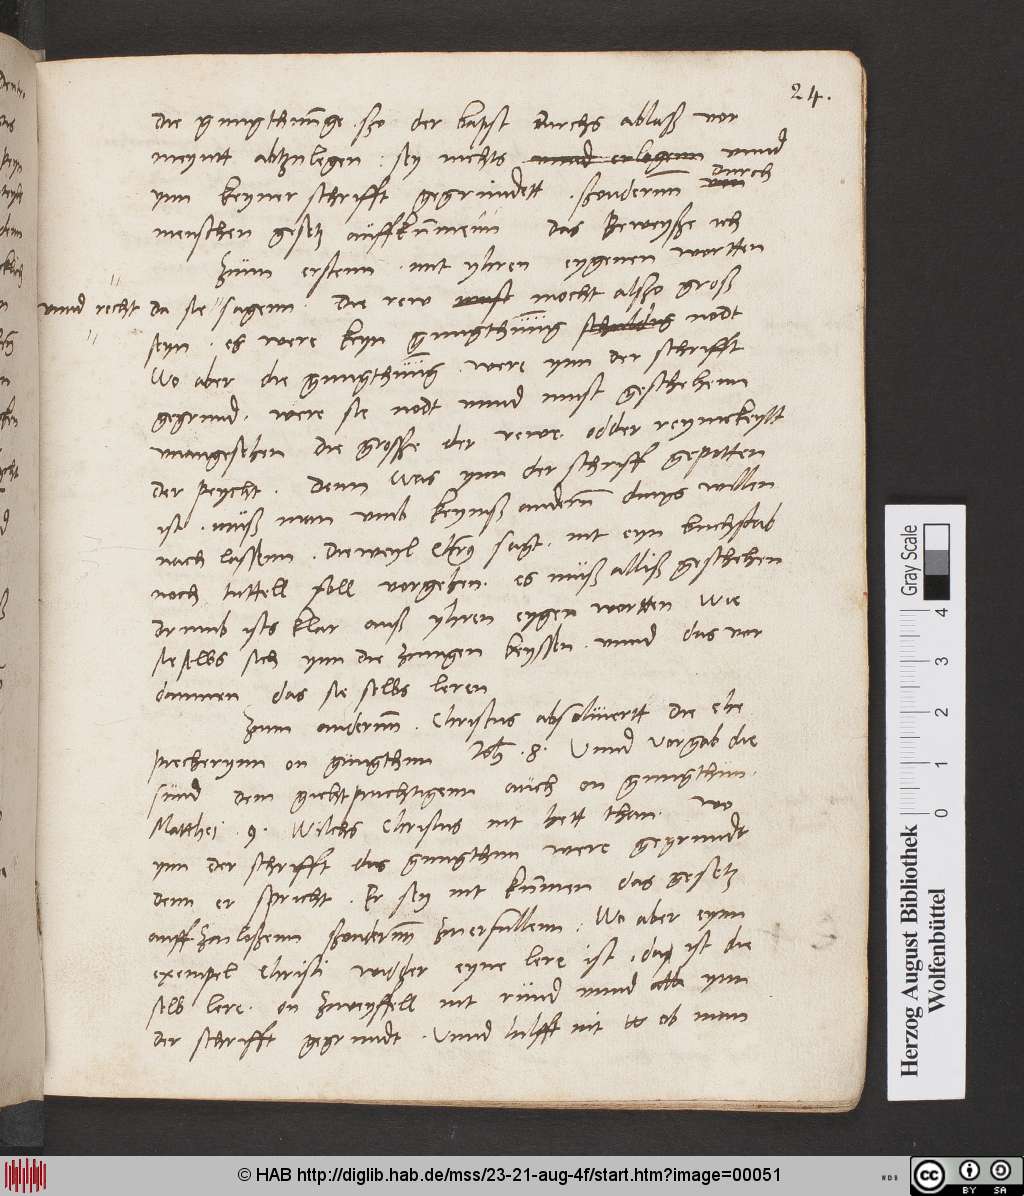 24.
die gnugthunge szo der bapst durchs ablaß vor
meyntt abtzulegen : sey nichts vnnd erlogenn vnnd
ynn keyner schrifft gegrundett . szonderm vnn durch
menschen gesetz auffkummenn das beweysze ich
Zum erstenn . mit yhren eygenen wortten
vnnd recht da sie sagenn . die rew must mocht alszo groß
seyn . es were keyn gnugthuug schuldig nodt
Wo aber die gnugthuug . were ynn der schrifft
gegrund . were sie nodt vnnd must geschehenn
vnangesehen die grosse der rewe . odder reynickeytt
der peycht . Denn Was ynn der schrifft gepotten
ist . muß man vmb keyniß andern dings willen
nach lassenn . dieweyl Chrs sagt . nit eyn buchstab
noch tuttell soll vorgehen . es muß alliß geschehen
Drumb ists klar auß yhren eygen wortten Wie
sie selbs sich ynn die zungen beyssen . vnnd das vor
damnen das sie selbs leren
Zum andernn . Christus absoluertt die ehe
precherynn on gnugthun Joh . 8 . Vnnd vorgab die
sund dem gichtpruchtigenn auch on gnugthun .
Matthei . 9 . Wilchs Christus nit hett than . wo
ynn der schrifft das gnugthun were gegrundt
denn er spricht . Er sey nit kummen das gesetz
auff zuloszenn szondernn zuerfullenn . Wo aber eynn
exempel Christi widder eyne lere ist . da ist die
selb lere . on zweyffell nit rund vnnd ynn
der schrifft gegrundt . Vnnd hilfft nit ob man
Gray Scale
0 1 2 3 4
Herzog August Bibliothek
Wolfenbüttel
© HAB http://diglib.hab.de/mss/23-21-aug-4f/start.htm?image=00051
WDB
cc BY SA